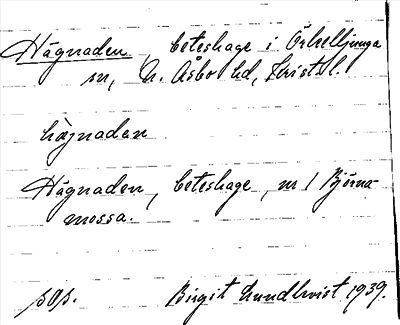 Hägnaden, beteshage i Örkelljunga
sn, N. Åsbo hd, Krist. l.
hägnaden
Hägnaden, beteshage, nr 1 Björna-
mossa.
sos.
Birgit Lundkvist 1939.